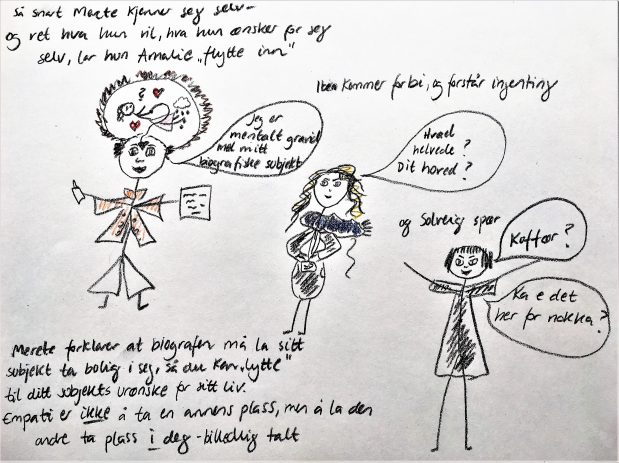 så snart Merete kjenner seg selv -
og vet hva hun vil, hva hun ønsker for seg
selv, lar hun Amalie "flytte inn"
Iben kommer forbi, og forstår ingenting
?
Jeg er
mentalt gravid
med mitt
biografiske subjekt
Hvad
helvede?
Dit hoved?
og Solveig spør
Koffor?
Ka e det
her for nokka?
Merete forklarer at biografen må la sitt
subjekt ta bolig i seg, så du kan "lytte"
til ditt subjekts ønske for sitt liv.
Empati er ikke å ta en annens plass, men å la den
andre ta plass i deg - billedlig talt